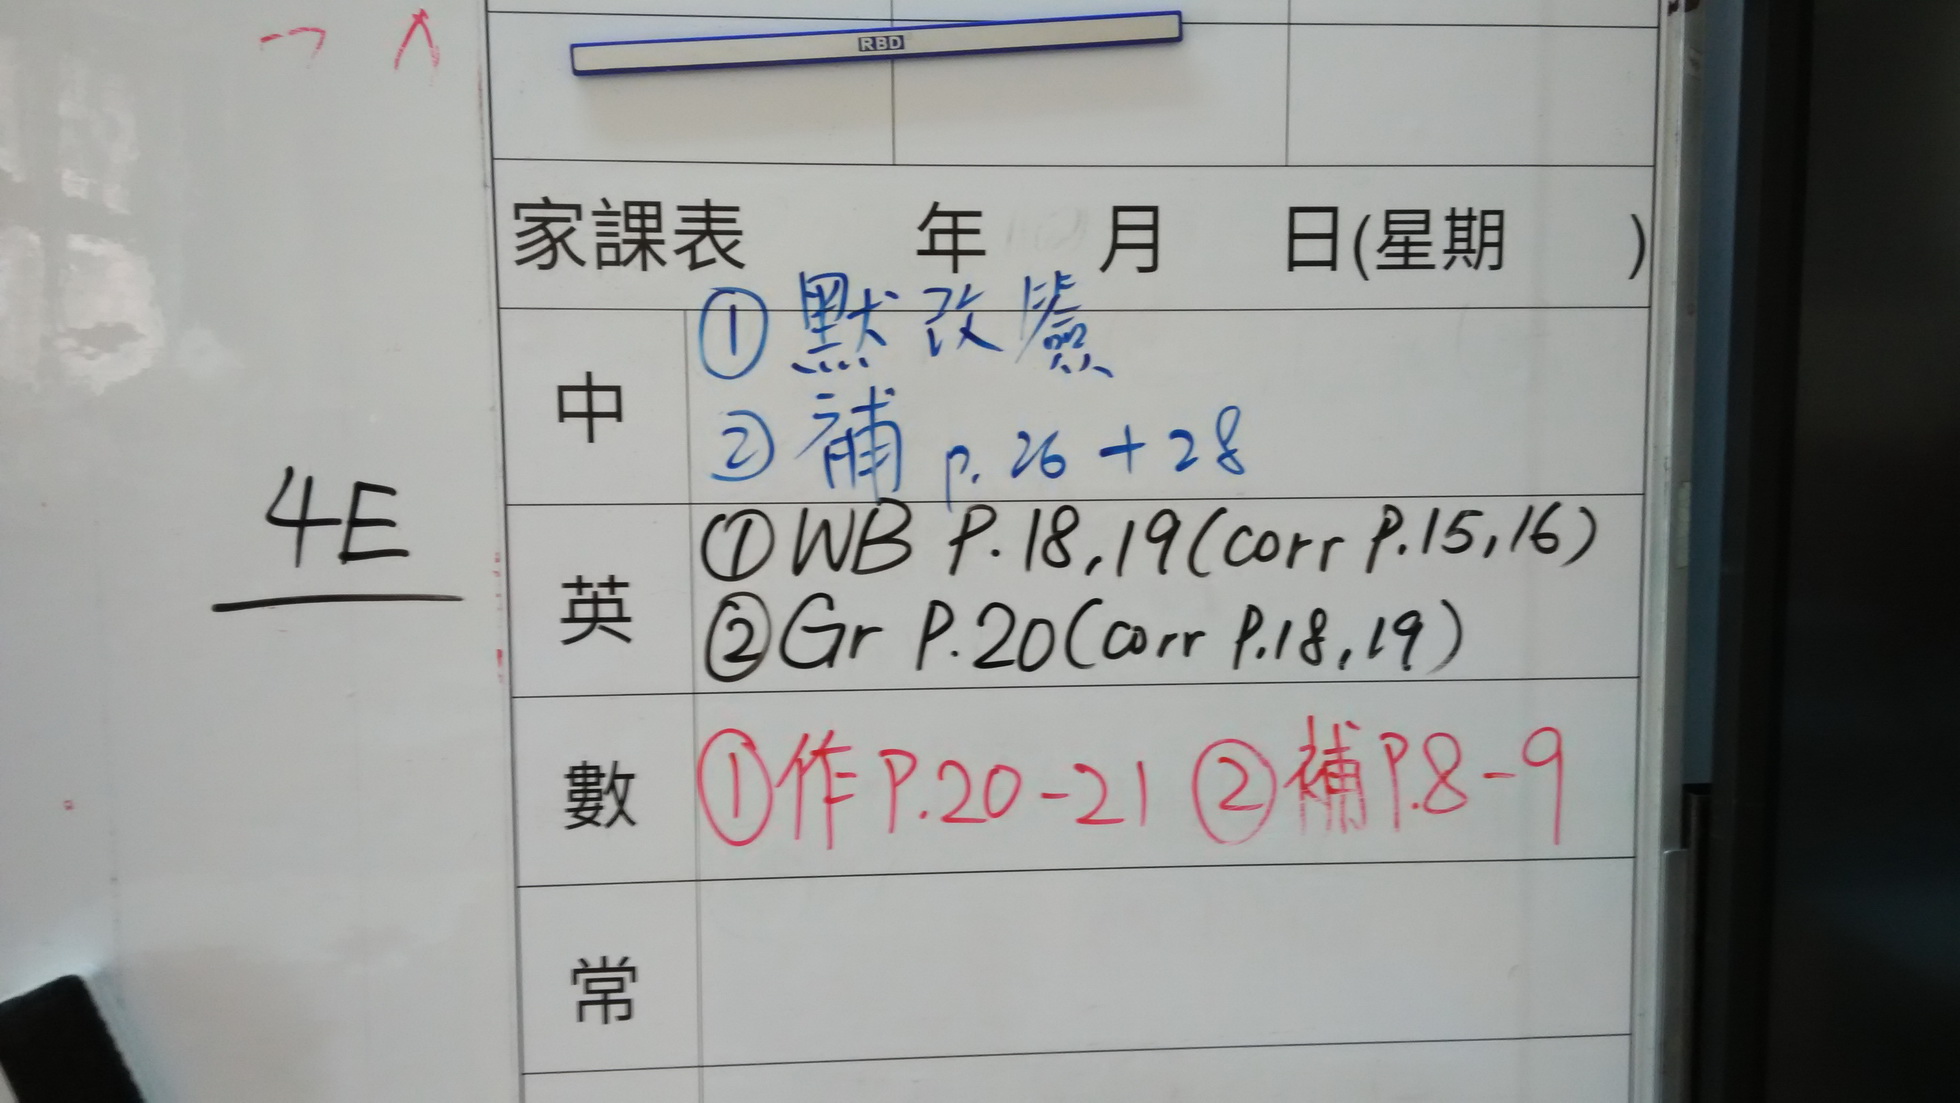 RBD
家課表 年 月 日(星期 )
中
① 默改
② 補 p. 26 + 28
4E
英
① WB P.18,19(corr P.15,16)
② Gr P.20(corr P.18,19)
數
①作P.20-21 ②補P.8-9
常